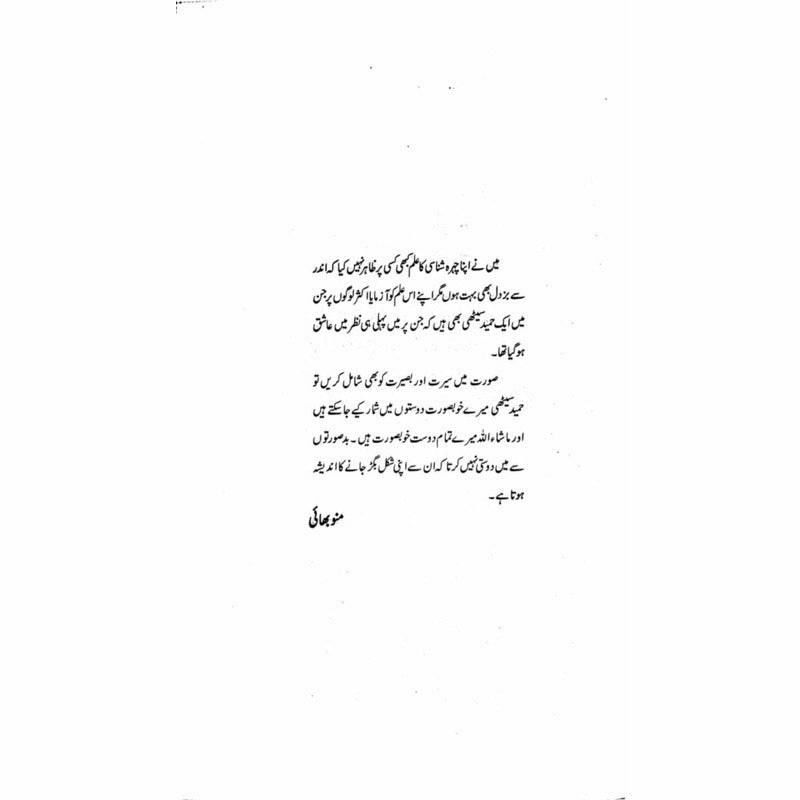 میں نے اپنا چہرہ شناسی کا علم کبھی کسی پر ظاہر نہیں کیا کہ اندر
سے بزدل بھی بہت ہوں مگر اپنے اس علم کو آزمایا اکثر لوگوں پر جن
میں ایک حمید سیٹھی بھی ہیں کہ جن پر میں پہلی ہی نظر میں عاشق
ہو گیا تھا۔
صورت میں سیرت اور بصیرت کو بھی شامل کریں تو
حمید سیٹھی میرے خوبصورت دوستوں میں شمار کیے جا سکتے ہیں
اور ماشاء اللہ میرے تمام دوست خوبصورت ہیں۔ بدصورتوں
سے میں دوستی نہیں کرتا کہ ان سے اپنی شکل بگڑ جانے کا اندیشہ
ہوتا ہے۔
منو بھائی